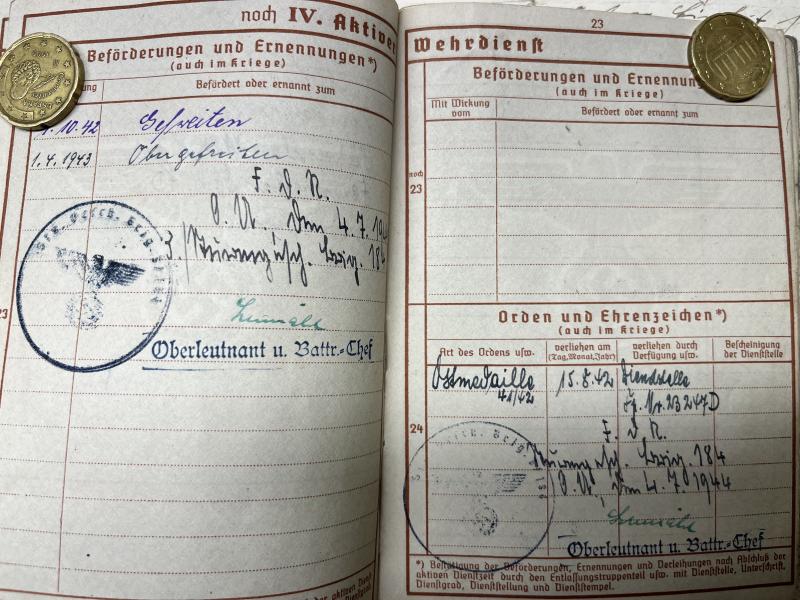 noch IV. Aktiver
Beförderungen und Ernennungen*)
(auch im Kriege)
Befördert oder ernannt zum
10.42 Gefreiten
1.4.1943 Obergefreiten
F. d. R.
O. U., den 4.7.194
3./Sturmgesch. Brig. 184
Oberleutnant u. Battr.-Chef
23
Wehrdienst
Beförderungen und Ernennung
(auch im Kriege)
Mit Wirkung vom
Befördert oder ernannt zum
noch
23
Orden und Ehrenzeichen*)
(auch im Kriege)
Art des Ordens usw.
verliehen am (Tag, Monat, Jahr)
verliehen durch Verfügung usw.
Bescheinigung der Dienststelle
Ostmedaille 15.8.42 Dienststelle
41/42 Fp. Nr. 23247D
24
F. d. R.
Sturmgesch. Brig. 184
O. U., den 4.7.1944
Oberleutnant u. Battr.-Chef
*) Bestätigung der Beförderungen, Ernennungen und Verleihungen nach Abschluß der
aktiven Dienstzeit durch den Entlassungstruppenteil usw. mit Dienststelle, Unterschrift,
Dienstgrad, Dienststellung und Dienststempel.